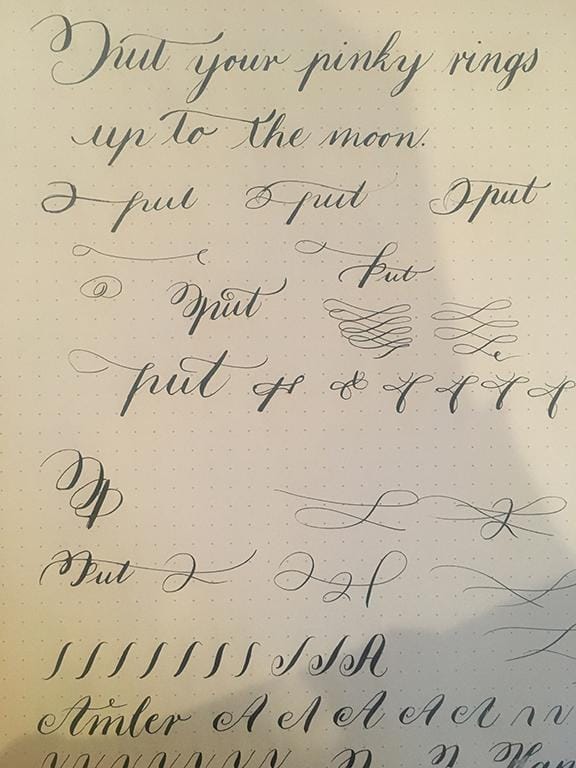 Put your pinky rings
up to the moon.
put put put
put
put
put
Put
A
Amler A A A A A